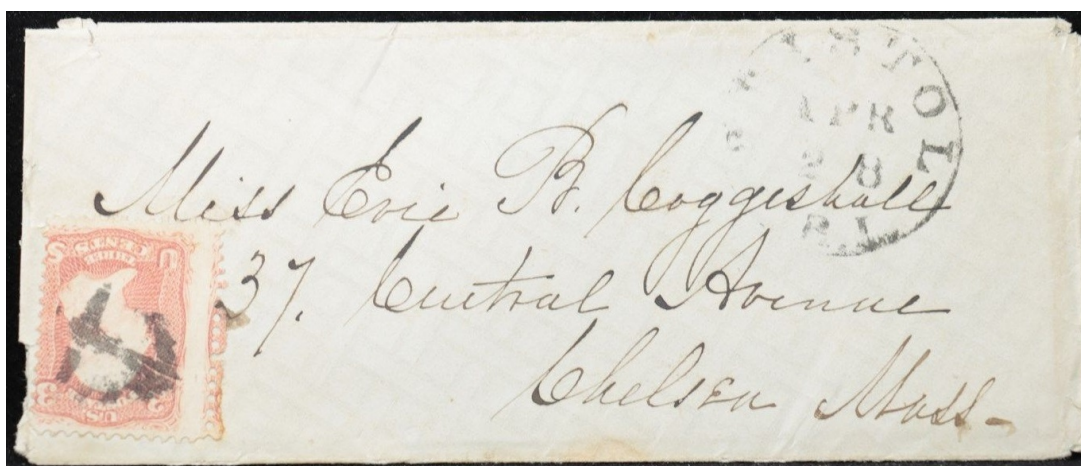 BRISTOL
APR
28
R.I.
Miss Evie B. Coggeshall
37. Central Avenue
Chelsea Mass-
U S
THREE
CENTS
3 3
U.S.